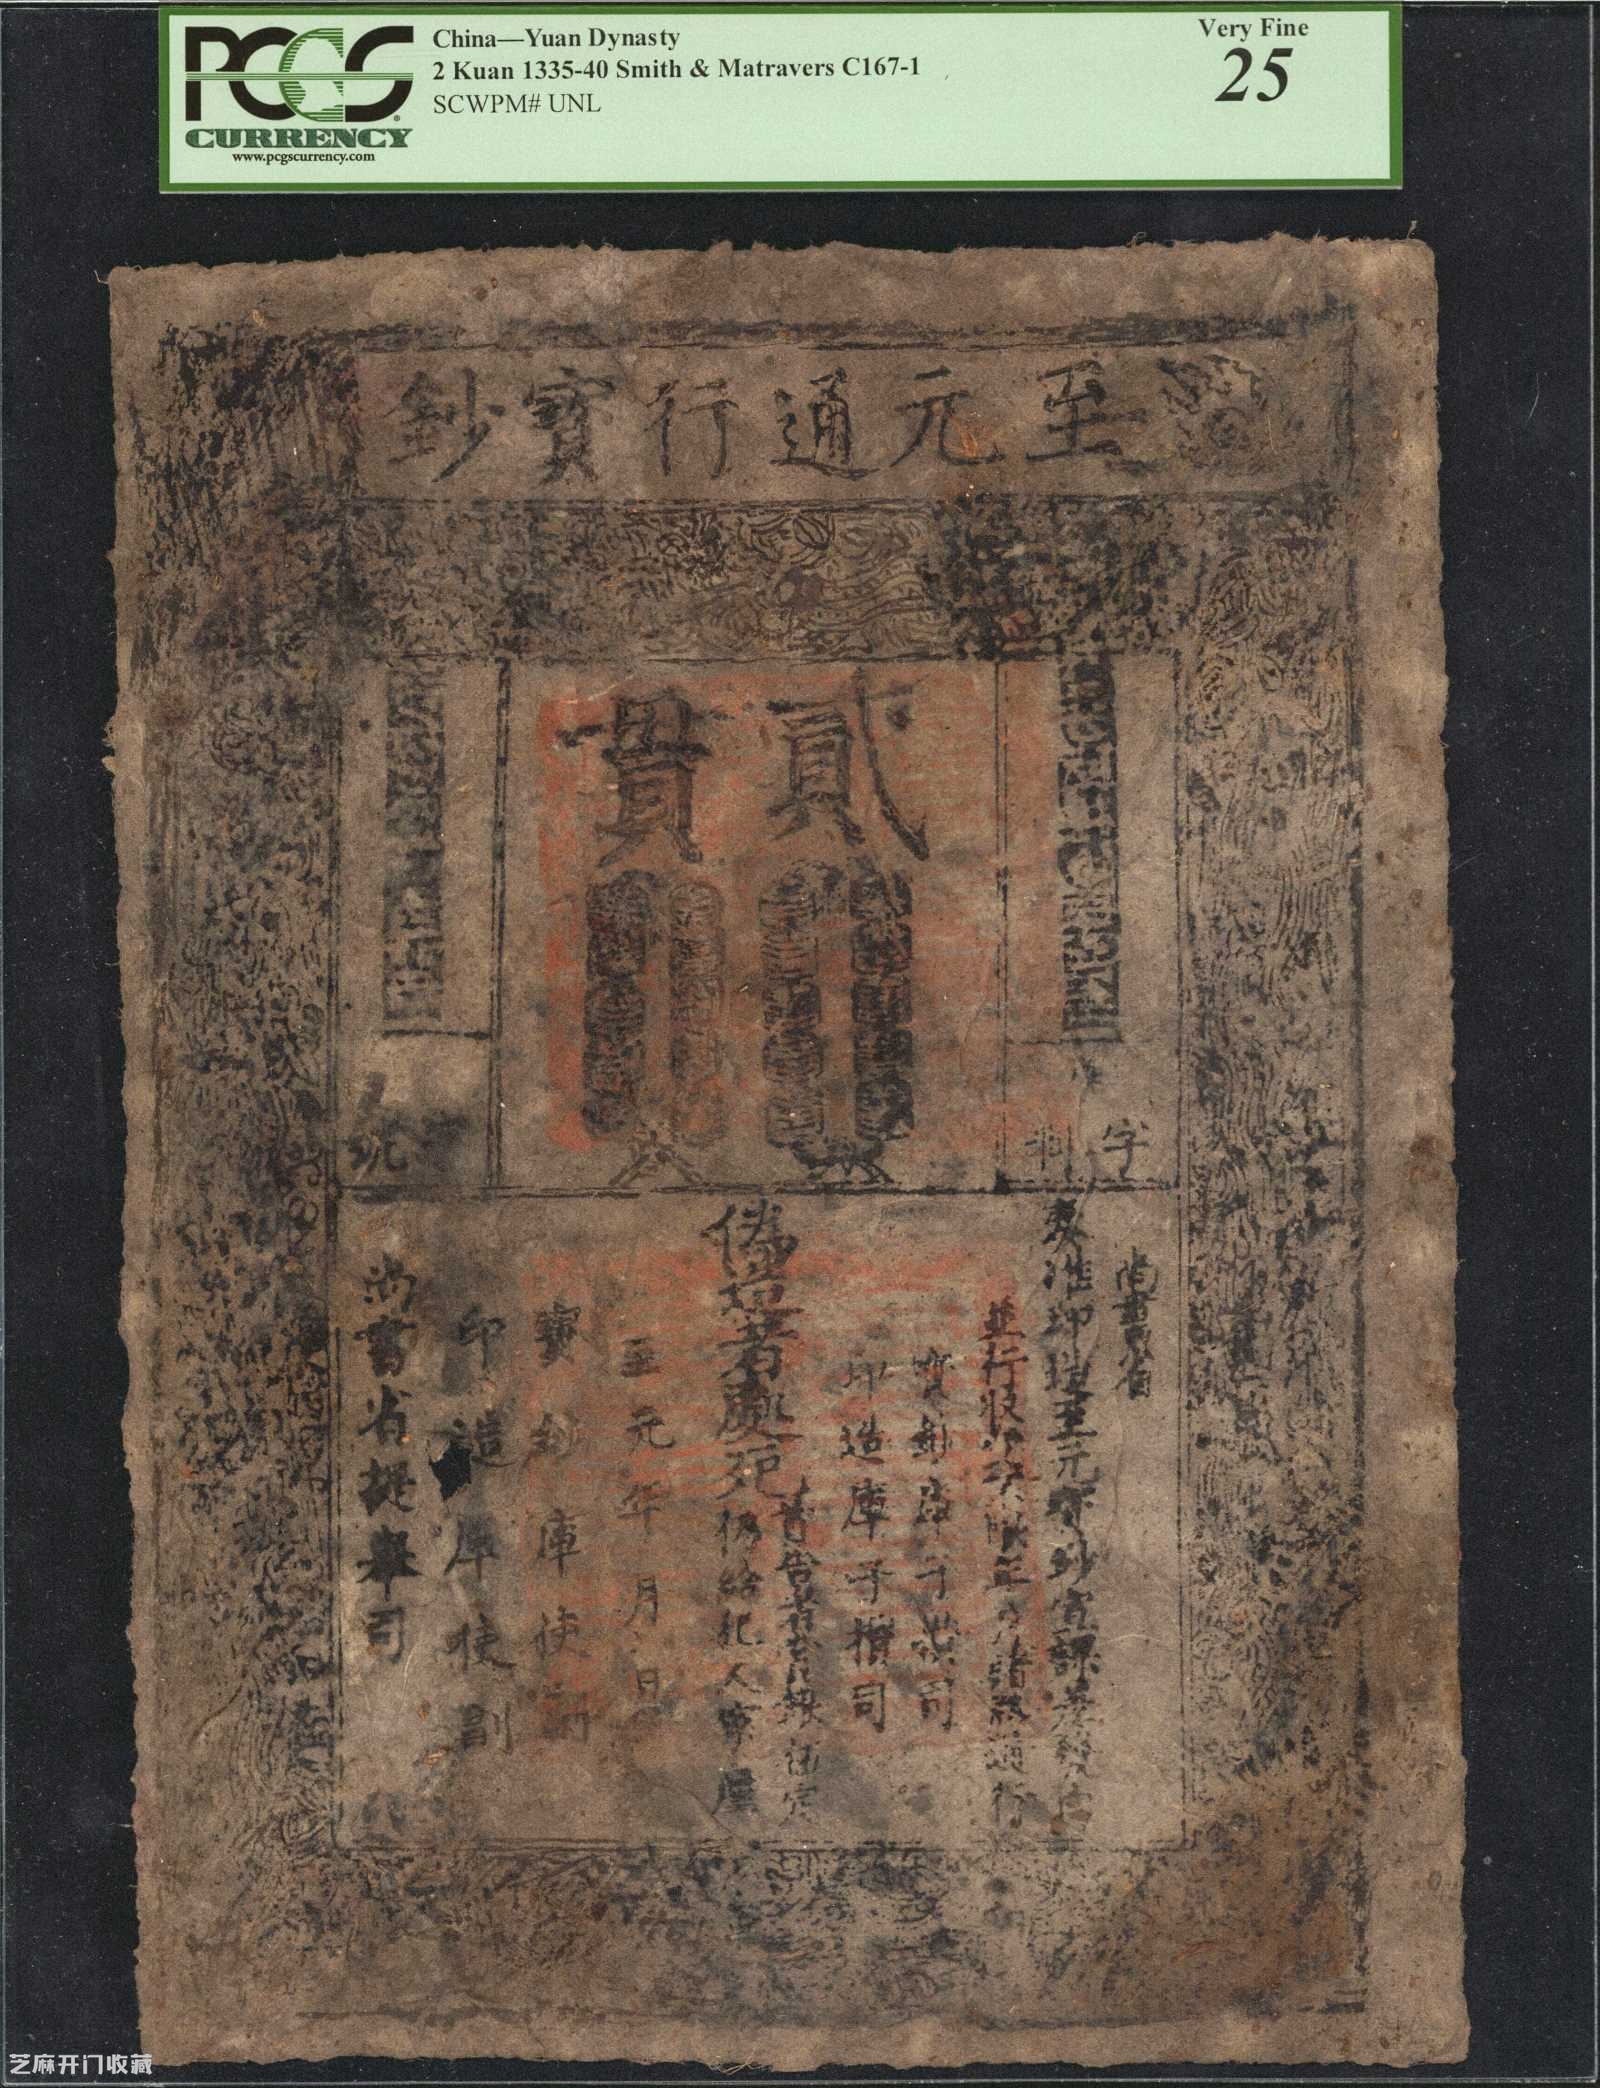 PCGS
CURRENCY
www.pcgscurrency.com
China—Yuan Dynasty
2 Kuan 1335-40 Smith & Matravers C167-1
SCWPM# UNL
Very Fine
25
至元通行寶鈔
貳貫
字
尚書省
奏准印造至元寶鈔宣課差發內
並行收受不限年月諸路通行
寶鈔庫子攢司
印造庫子攢司
偽造者處死
首告者賞銀伍定
仍給犯人家產
至元 年 月 日
寶鈔庫使副
印造庫使副
尚書省提舉司
芝麻开门收藏